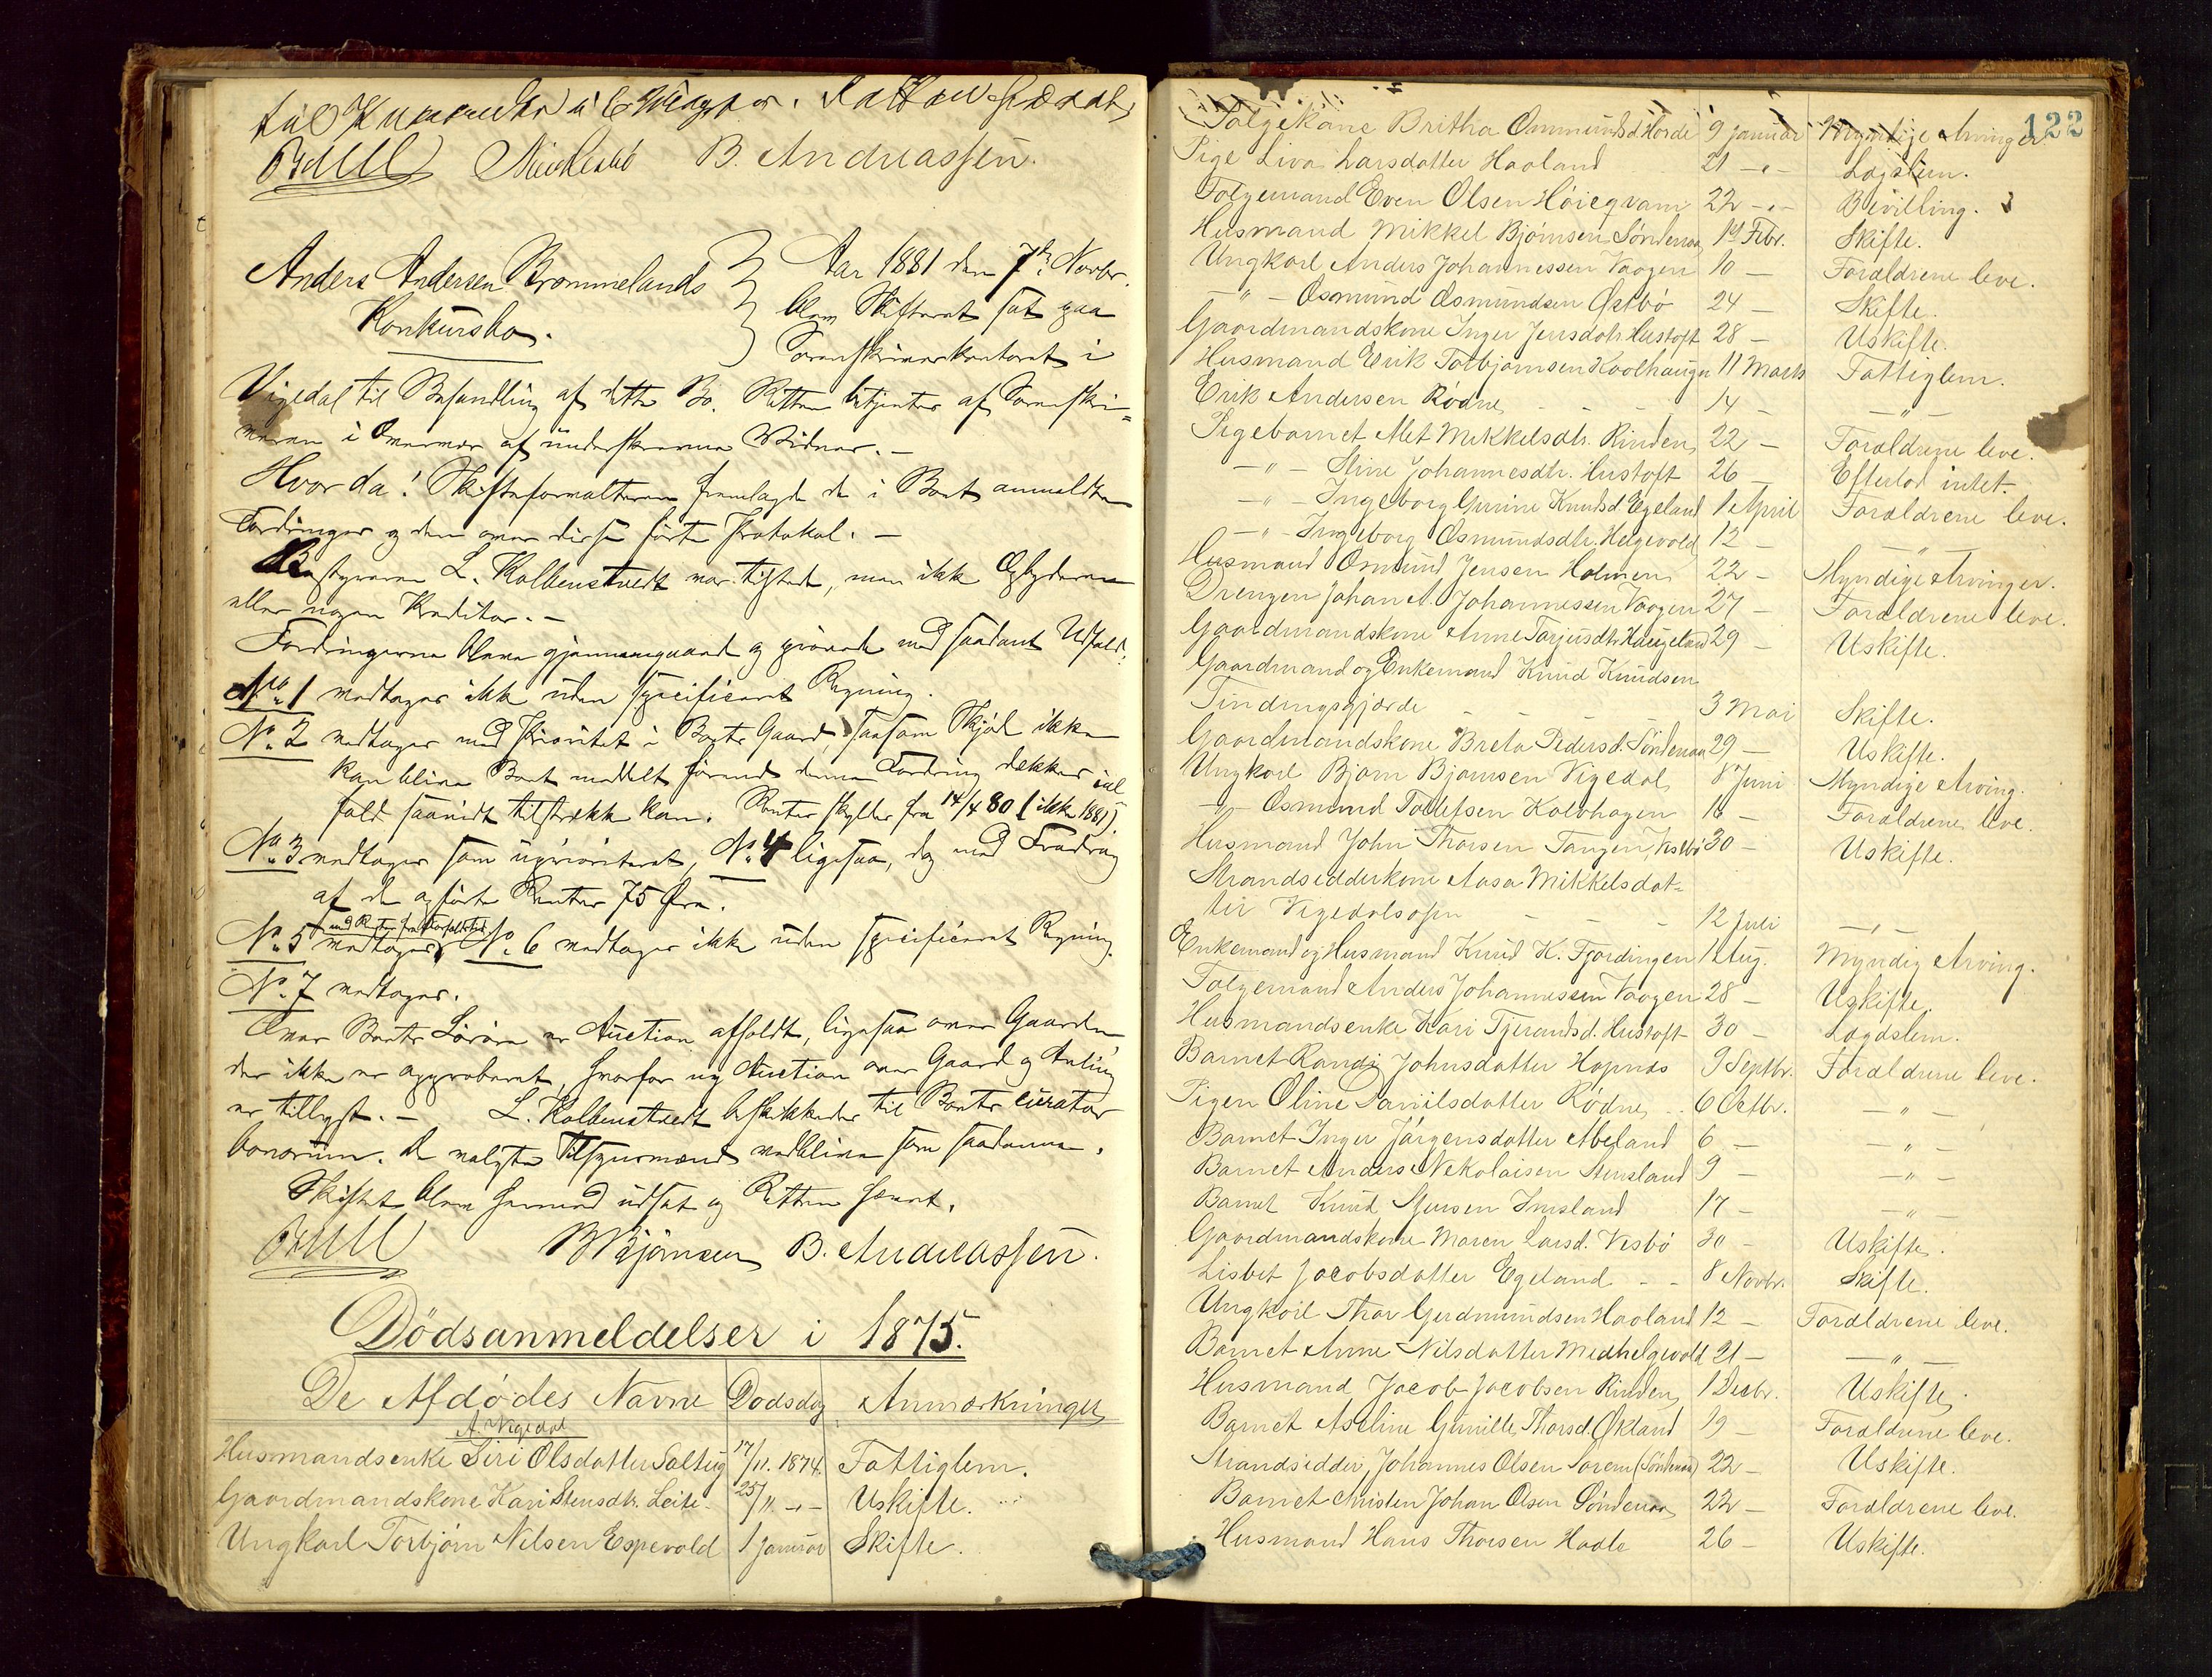 B. Andreassen.
Anders Andersen Brommelands
Konkursbo.
Aar 1881 den 7de Novbr.
blev Skifteret sat paa
Sorenskriverkontoret i
Vigedal til Behandling af dette Bo. Retten betjentes af Sorenskri=
veren i Overvær af underskrevne Vidner. -
Hvorda! Skifteforvalteren fremlagde de i Boet anmeldte
Fordringer og den over disse førte Protokol. -
Bestyreren L. Kolbenstvedt var tilstede, men ikke Opbyderen
eller nogen Kreditor. -
Fordringerne bleve gjennemgaaede og prøvede med saadant Udfald:
No. 1 modtages ikke uden specificeret Regning.
No. 2 modtages med Prioritet i Boets Gaard, saasom Skjøde ikke
kan blive Boet meddelt førend denne Fordring dækkes ial
fald saavidt tilstrække kan. Renter skyldes fra 14/4 80 (ikke 1881).
No. 3 modtages som uprioriteret, No. 4 ligesaa, dog med Fradrag
af de opførte Renter 75 Øre.
No. 5 modtages, No. 6 modtages ikke uden specificeret Regning.
No. 7 modtages.
Over Boets Løsøre er Auction afholdt, ligesaa over Gaarden
der ikke er approberet, hvorfor ny Auction over Gaard og Avling
er tillyst. - L. Kolbenstvedt beskikkedes til Boets curator
bonorum. De valgte Tilsynsmænd vedblive som saadanne.
Skiftet blev hermed udsat og Retten hævet.
B. Bjørnsen B. Andreassen.
Dödsanmeldelser i 1875.
De Afdødes Navne Dødsdag Anmærkninger
A. Vigedal
Husmandsenke Siri Olsdatter Saltug 17/11. 1874. Fattiglem.
Gaardmandskone Kari Stensdtr. Leite - 25/11 -"- Uskifte.
Ungkarl Torbjørn Nilsen Espevold 1 Januar Skifte.
122
Følgekone Britha Ommundsd. Horde 9 Januar Myndige Arvinger
Pige Liva Larsdatter Haaland 21 -"- Lægslem.
Følgemand Even Olsen Høiegvam 22 -"- Bevilling.
Husmand Mikkel Bjørnsen Søndenaa 1st Febr. Skifte.
Ungkarl Anders Johannessen Vaagen 10 - Forældrene leve.
-"- Osmund Osmundsen Østbø 24 - Skifte.
Gaardmandskone Inger Jensdtr. Hustoft 28 - Uskifte.
Husmand Erik Torbjørnsen Kaalhaugen 11 Marts Fattiglem.
Erik Andersen Rødne - - - 14 - -"-
Pigebarnet Met Mikkelsdtr. Rinden 22 - Forældrene leve.
-"- Stine Johannesdtr. Hustoft 26 - Efterlod intet.
-"- Ingeborg Gurine Knudsd. Egeland 1 April Forældrene leve.
-"- Ingeborg Osmundsdtr. Helgevold 12 - -"-
Husmand Osmund Jensen Holmen 22 - Myndige Arvinger.
Drengen Johan A. Johannessen Vaagen 27 - Forældrene leve.
Gaardmandskone Anne Tarjusdtr. Haugeland 29 - Uskifte.
Gaardmand og Enkemand Knud Knudsen
Tindingsgjærde - - - 3 Mai Skifte.
Gaardmandskone Breta Pedersd. Søndenaa 29 - Uskifte.
Ungkarl Bjørn Bjørnsen Vigedal 8 Juni Myndige Arving.
-"- Osmund Tollefsen Kolvhagen 16 - Forældrene leve.
Husmand John Thorsen Tangen, Vesbø 30 - Uskifte.
Strandsidderkone Aasa Mikkelsdat=
ter Vigedalsosen - - - 12 Juli -"-
Enkemand og Husmand Knud K. Fjordingen 1 Aug. Myndig Arving.
Følgemand Anders Johannessen Vaagen 28 - Uskifte.
Husmandsenke Kari Tjerandsd. Hustoft 30 - Lægdslem.
Barnet Randi Johnsdatter Hopnæs 9 Septbr. Forældrene leve.
Pigen Oline Danilsdatter Rødne 6 Octbr. -"-
Barnet Inger Jørgensdatter Abeland 6 - -"-
Barnet Anders Nekolaisen Stensland 9 - -"-
Barnet Knud Stensen Imsland 17 - -"-
Gaardmandskone Maren Larsd. Vesbø 30 - Uskifte.
Lisbet Jacobsdatter Egeland - - 8 Novbr. Skifte.
Ungkarl Thor Gudmundsen Haaland 12 - Forældrene leve.
Barnet Anne Nilsdatter Medhelgevold 21 - -"-
Husmand Jacob Jacobsen Rinden 1 Decbr. Uskifte.
Barnet Aseline Gunille Thorsd. Økland 19 - Forældrene leve.
Strandsidder, Johannes Olsen Sorem (Søndenaa) 22 - Uskifte.
Barnet Christen Johan Olsen Søndenaa 22 - Forældrene leve.
Husmand Hans Thorsen Hadle 26 - Uskifte.